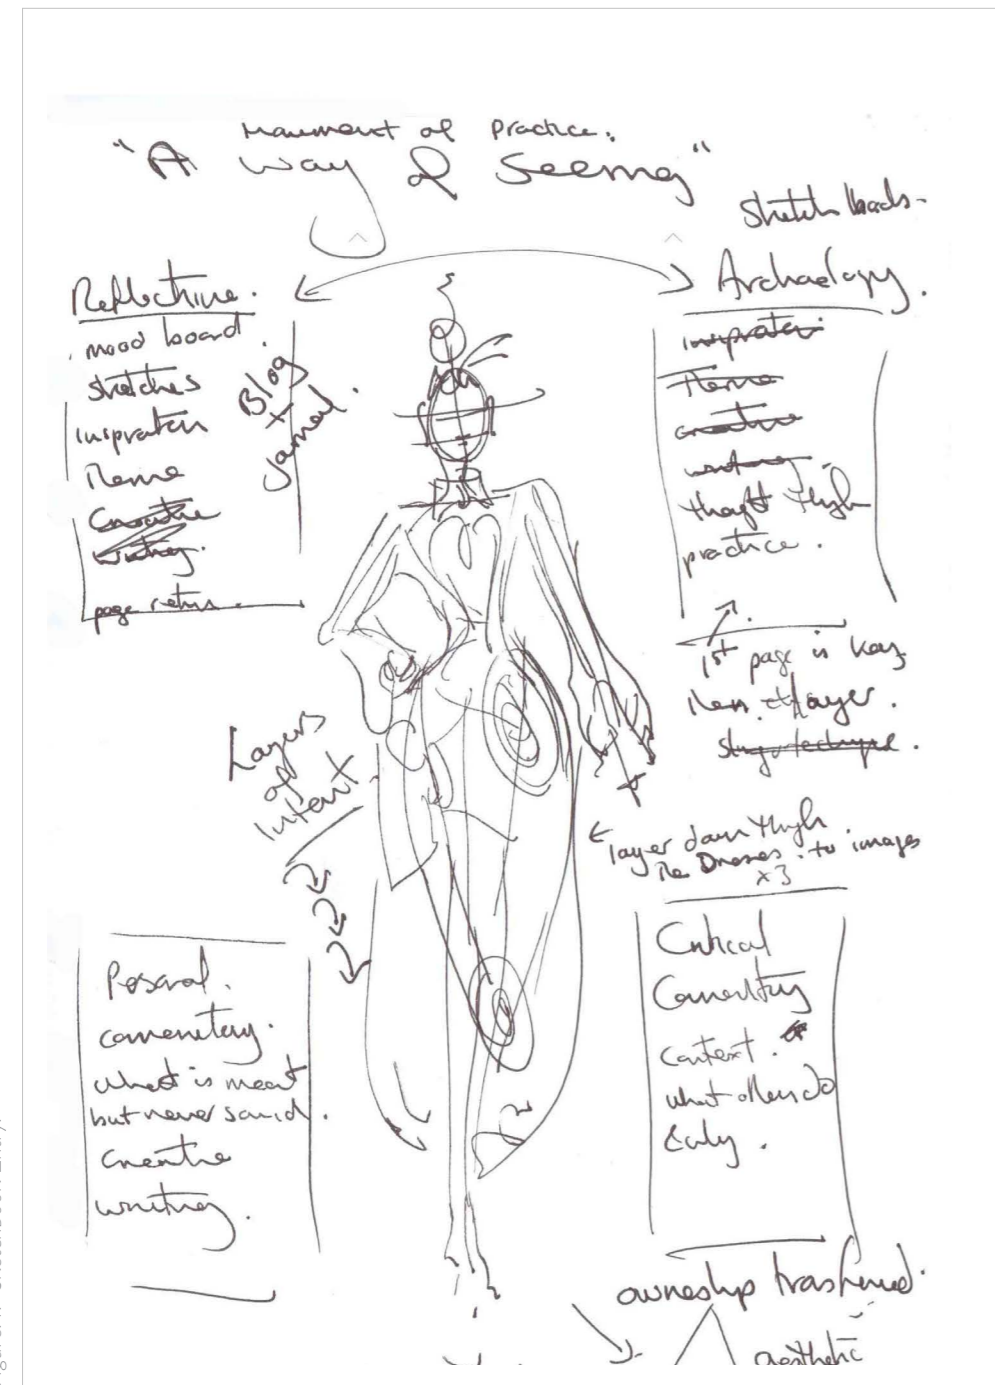 movement of practice.
"A way of Seeing"
Sketch books.
Reflective.
mood board
sketches
inspiration
Theme
creative
writing.
page returns.
Blog
+
Journal.
Archaeology.
inspiration
Theme
creative
writing
thought through
practice.
1st page is key,
then. layer.
Layers
of
Intent.
layer down through
The Dresses. to images
x3
Personal.
commentary.
what is meant
but never said.
Creative
writing.
Critical
Commentary
context. of
what others do
& why.
ownership transferred.
aesthetic